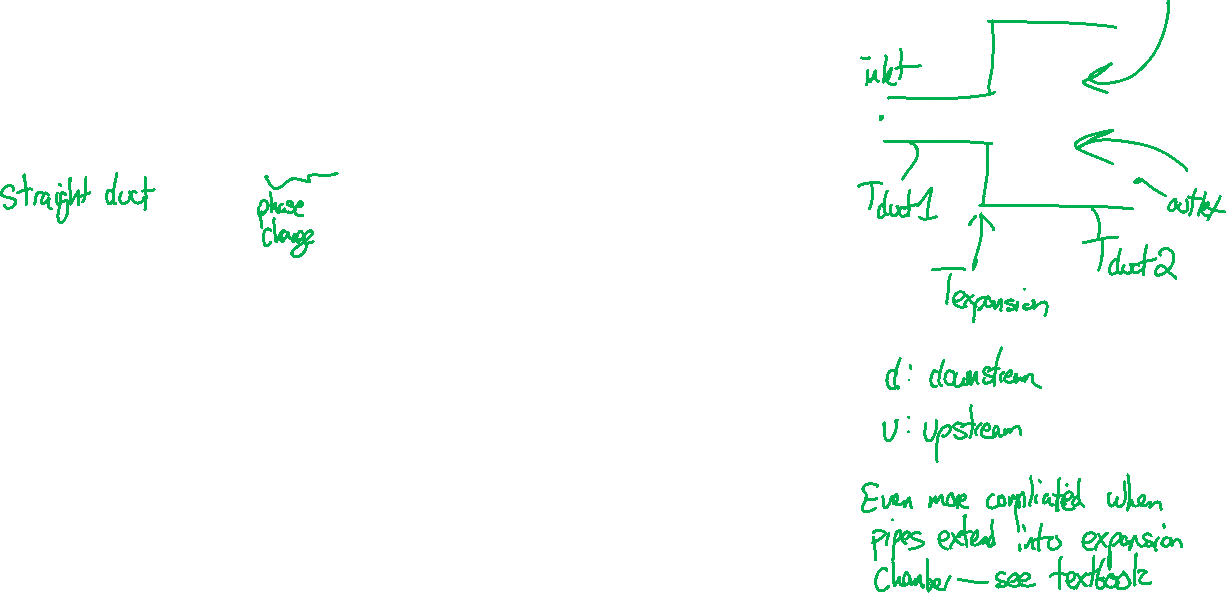 inlet
Straight duct
phase
change
Tduct1
outlet
Tduct2
Texpansion
d: downstream
u: upstream
Even more compliated when
pipes extend into expansion
chamber — see textbook